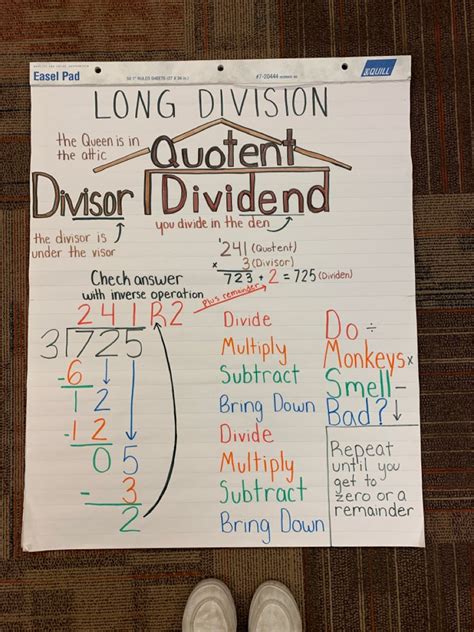 Easel Pad
50 1" RULED SHEETS (27 X 34 in.)
#7-20444
QUILL
LONG DIVISION
the Queen is in
the attic
Quotent
Divisor
Dividend
you divide in the den
the divisor is
under the visor
1
241 (Quotent)
x 3 (Divisor)
723 + 2 = 725 (Dividen)
Check answer
with inverse operation
Plus remainder
241R2
3 725
-6
12
-12
05
- 3
2
Divide
Multiply
Subtract
Bring Down
Divide
Multiply
Subtract
Bring Down
Do ÷
Monkeys x
Smell -
Bad? ↓
Repeat
until you
get to
zero or a
remainder